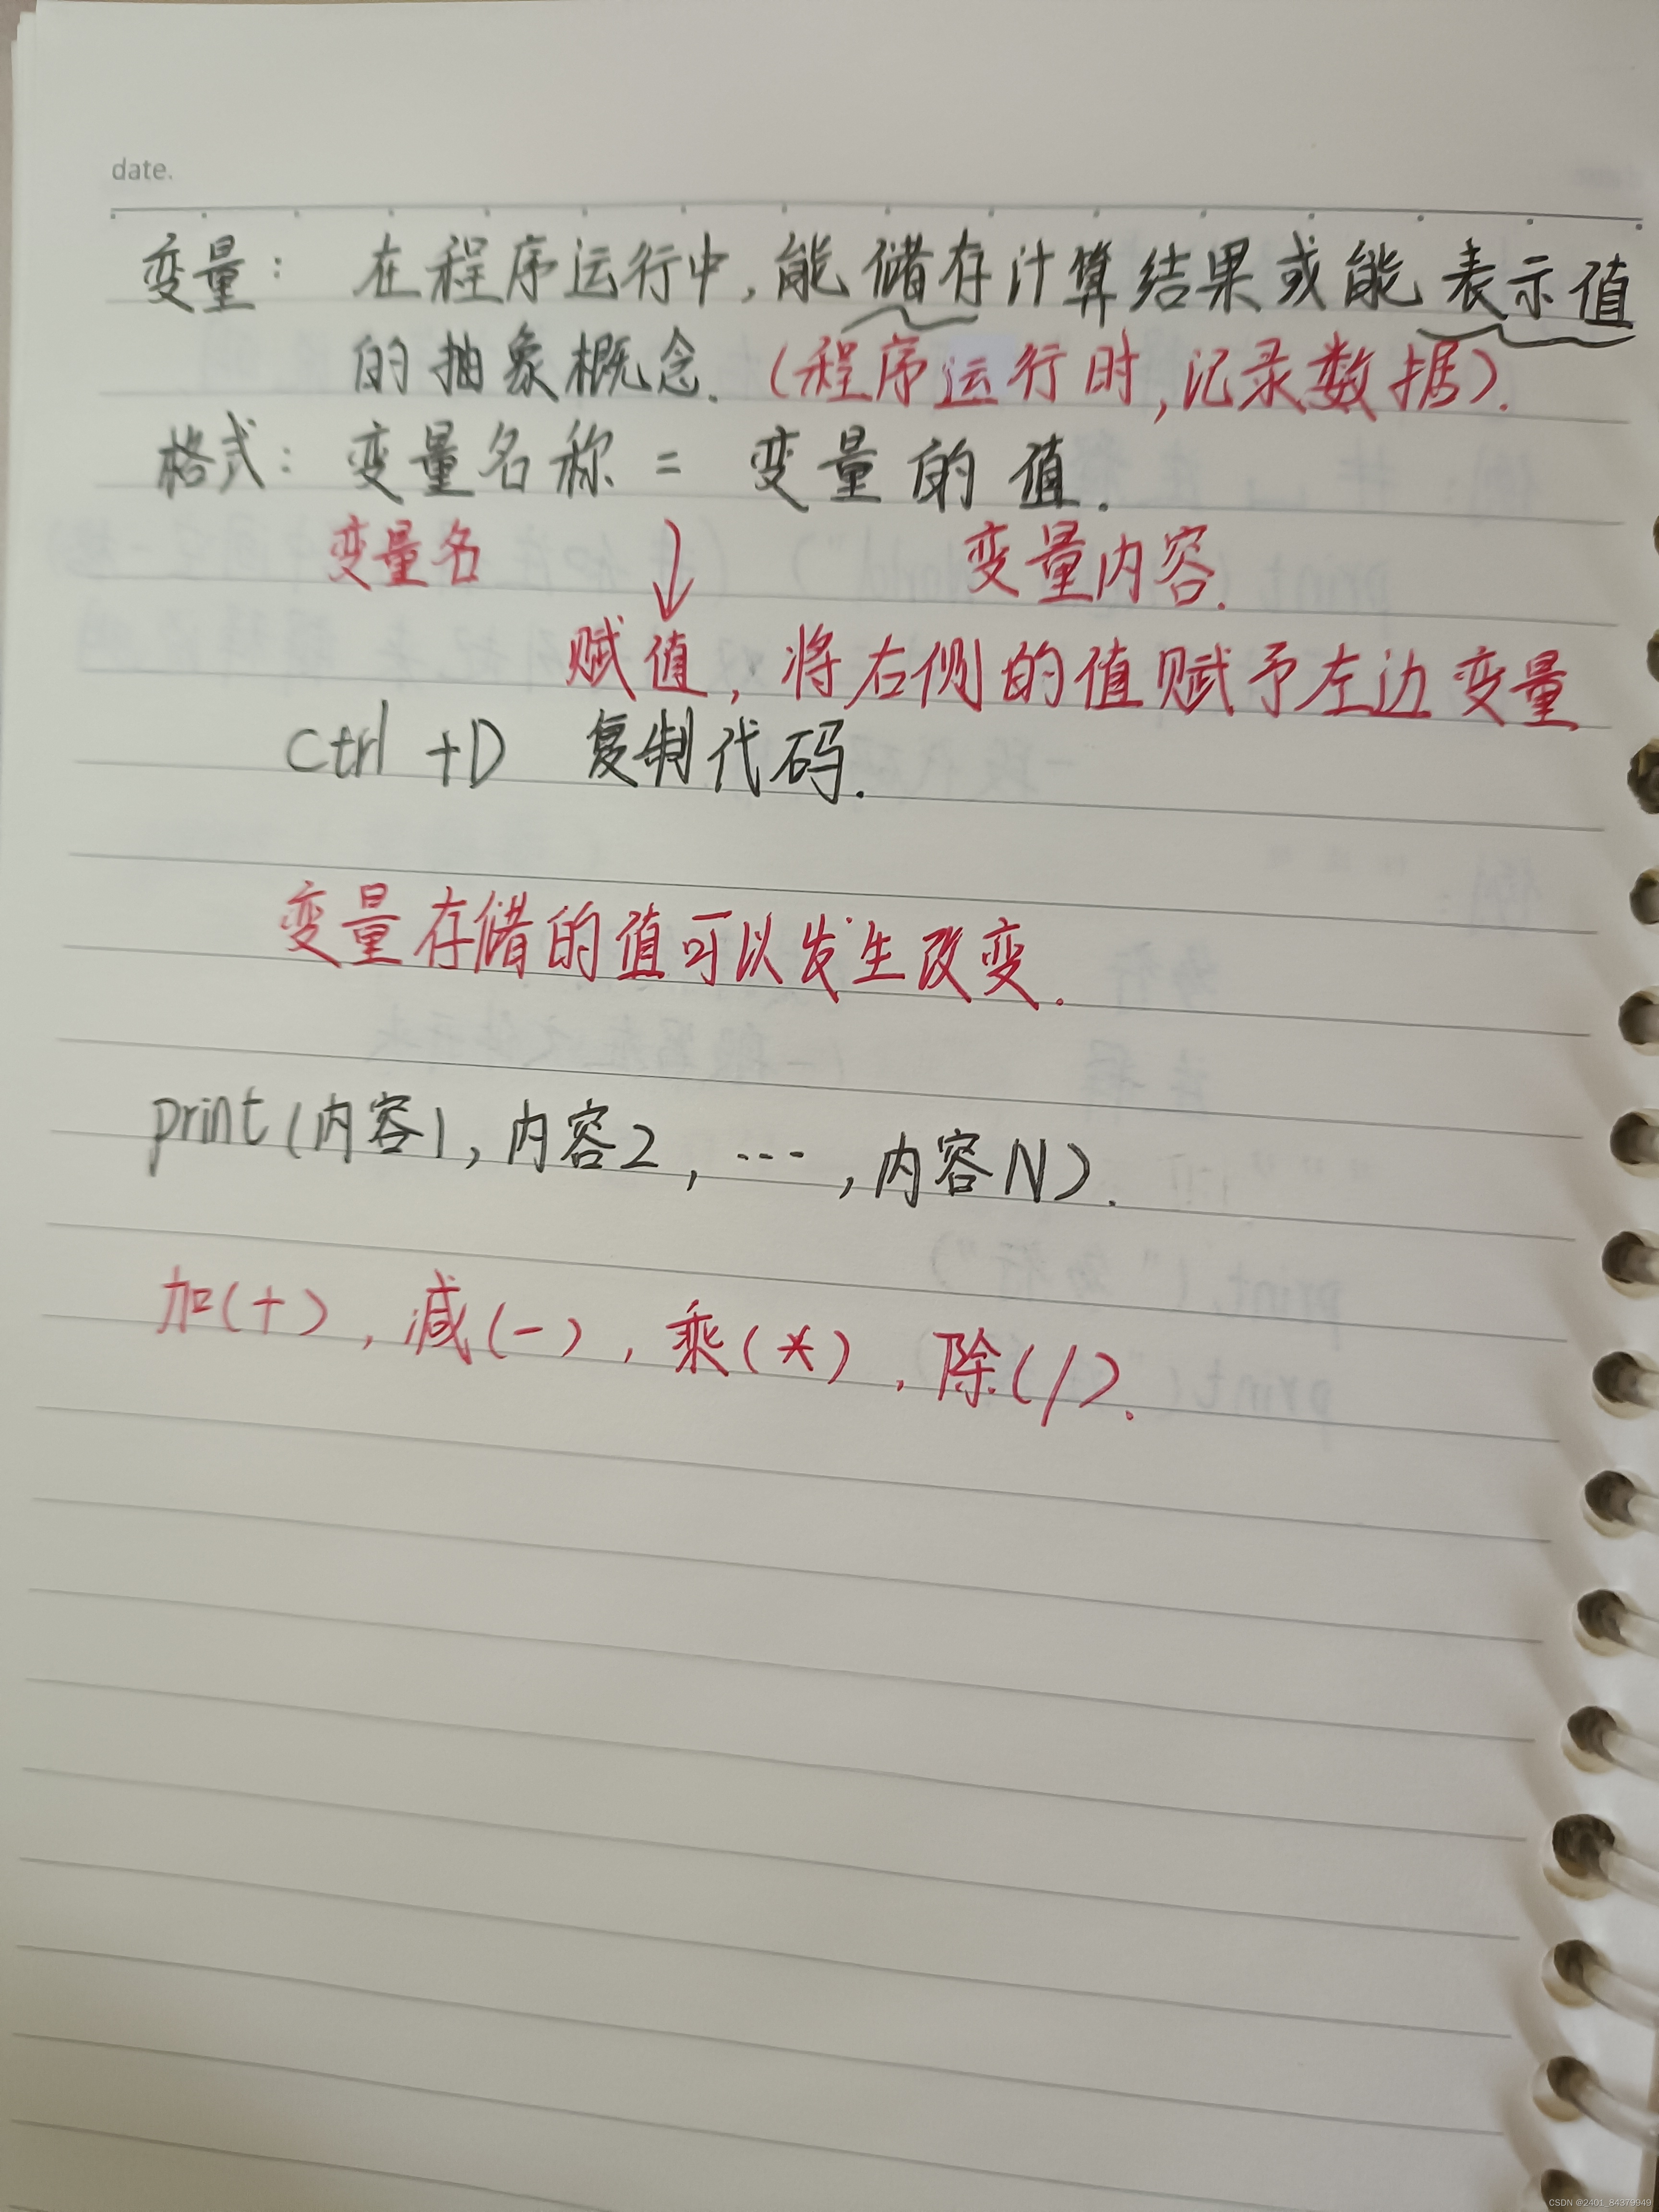 date.
变量： 在程序运行中，能储存计算结果或能表示值
的抽象概念．（程序运行时，记录数据）．
格式： 变量名称 = 变量的值．
变量名 ↓ 变量内容．
赋值，将右侧的值赋予左边变量
Ctrl +D 复制代码．
变量存储的值可以发生改变．
print(内容1，内容2，…，内容N)．
加(+)，减(-)，乘(*)，除(/)．
CSDN @2401_84379949